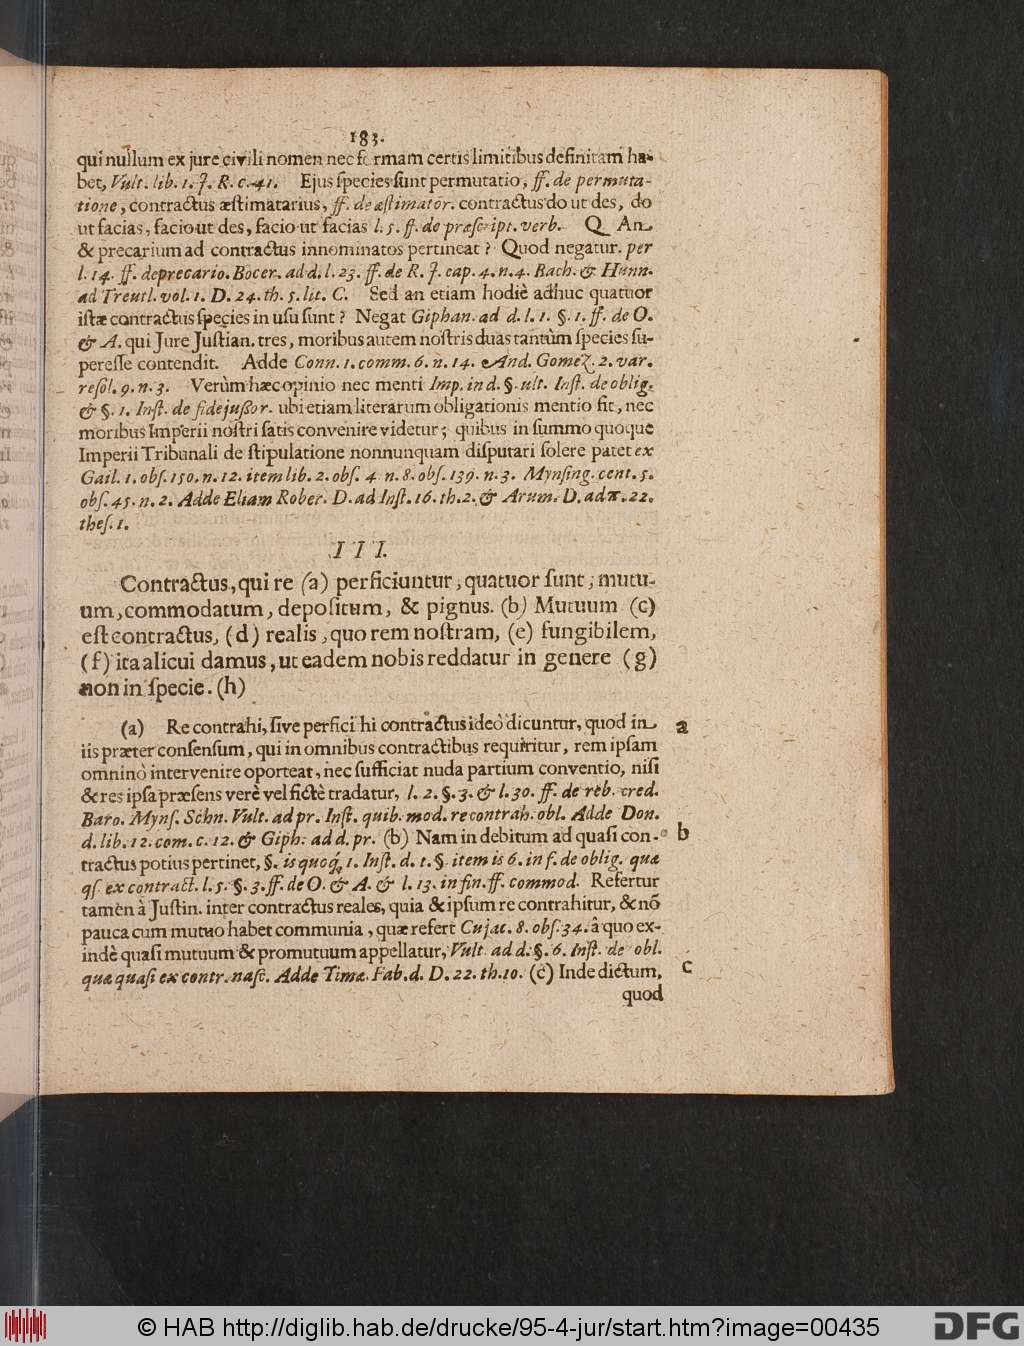 183.
qui nullum ex jure civili nomen nec formam certis limitibus definitam ha-
bet, Vult. lib. 1. J. R. c. 41. Ejus species sunt permutatio, ff. de permuta-
tione, contractus æstimatarius, ff. de æstimator. contractus do ut des, do
ut facias, facio ut des, facio ut facias l. 5. ff. de præscript. verb. Q. An
& precarium ad contractus innominatos pertineat? Quod negatur. per
l. 14. ff. de precario. Bocer. ad d. l. 23. ff. de R. J. cap. 4. n. 4. Bach. & Hunn.
ad Treutl. vol. 1. D. 24. th. 5. lit. C. Sed an etiam hodiè adhuc quatuor
istæ contractus species in usu sunt? Negat Giphan. ad d. l. 1. §. 1. ff. de O.
& A. qui Jure Justian. tres, moribus autem nostris duas tantùm species su-
peresse contendit. Adde Conn. 1. comm. 6. n. 14. And. Gomez. 2. var.
resol. 9. n. 3. Verùm hæc opinio nec menti Imp. in d. §. ult. Inst. de oblig.
& §. 1. Inst. de fidejußor. ubi etiam literarum obligationis mentio fit, nec
moribus Imperii nostri satis convenire videtur; quibus in summo quoque
Imperii Tribunali de stipulatione nonnunquam disputari solere patet ex
Gail. 1. obs. 150. n. 12. item lib. 2. obs. 4 n. 8. obs. 139. n. 3. Mynsing. cent. 5.
obs. 45. n. 2. Adde Eliam Rober. D. ad Inst. 16. th. 2. & Arum. D. ad π. 22.
thes. 1.
III.
Contractus, qui re (a) perficiuntur, quatuor sunt; mutu-
um, commodatum, depositum, & pignus. (b) Mutuum (c)
est contractus, (d) realis, quo rem nostram, (e) fungibilem,
(f) ita alicui damus, ut eadem nobis reddatur in genere (g)
non in specie. (h)
(a) Re contrahi, sive perfici hi contractus ideò dicuntur, quod in a
iis præter consensum, qui in omnibus contractibus requiritur, rem ipsam
omninò intervenire oporteat, nec sufficiat nuda partium conventio, nisi
& res ipsa præsens verè vel fictè tradatur, l. 2. §. 3. & l. 30. ff. de reb. cred.
Baro. Myns. Schn. Vult. ad pr. Inst. quib. mod. re contrah. obl. Adde Don.
d. lib. 12. com. c. 12. & Giph. ad d. pr. (b) Nam indebitum ad quasi con- b
tractus potius pertinet, §. is quoq; 1. Inst. d. t. §. item is 6. in f. de oblig. quæ
qs. ex contract. l. 5. §. 3. ff. de O. & A. & l. 13. in fin. ff. commod. Refertur
tamèn à Justin. inter contractus reales, quia & ipsum re contrahitur, & nõ
pauca cum mutuo habet communia, quæ refert Cujac. 8. obs. 34. â quo ex-
indè quasi mutuum & promutuum appellatur, Vult. ad d. §. 6. Inst. de obl.
quæ quasi ex contr. nasc. Adde Timæ. Fab. d. D. 22. th. 10. (c) Inde dictum, c
quod
© HAB http://diglib.hab.de/drucke/95-4-jur/start.htm?image=00435
DFG